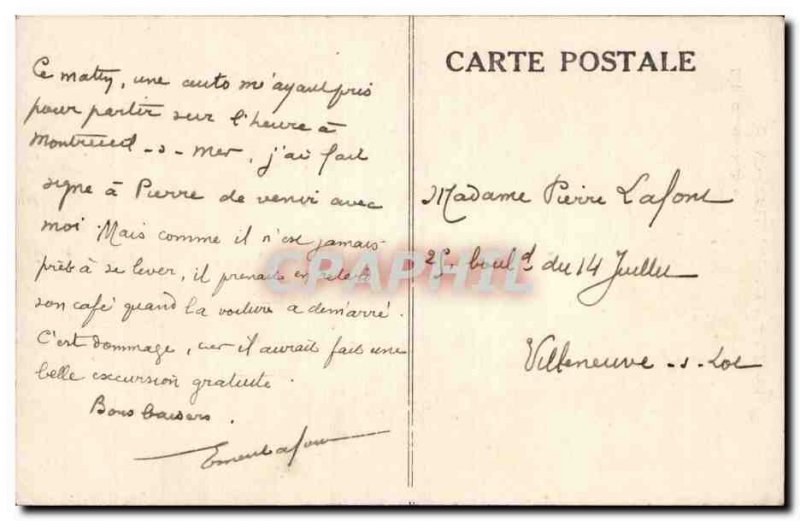 Ce matin, une auto m'ayant pris
pour partir sur l'heure à
Montreuil-s-Mer, j'ai fait
signe à Pierre de venir avec
moi. Mais comme il n'est jamais
prêt à se lever, il prenait en
son café quand la voiture a démarré.
C'est dommage, car il aurait fait une
belle excursion gratuite.
Bons baisers.
CARTE POSTALE
Madame Pierre Lafont
boul.d du 14 Juillet
Villeneuve-s-Lot
CPAPHIL